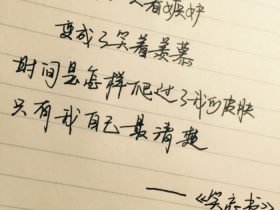 着嫉妒
变成了笑着羡慕
时间是怎样爬过了我的皮肤
只有我自己最清楚
——《笑忘书》